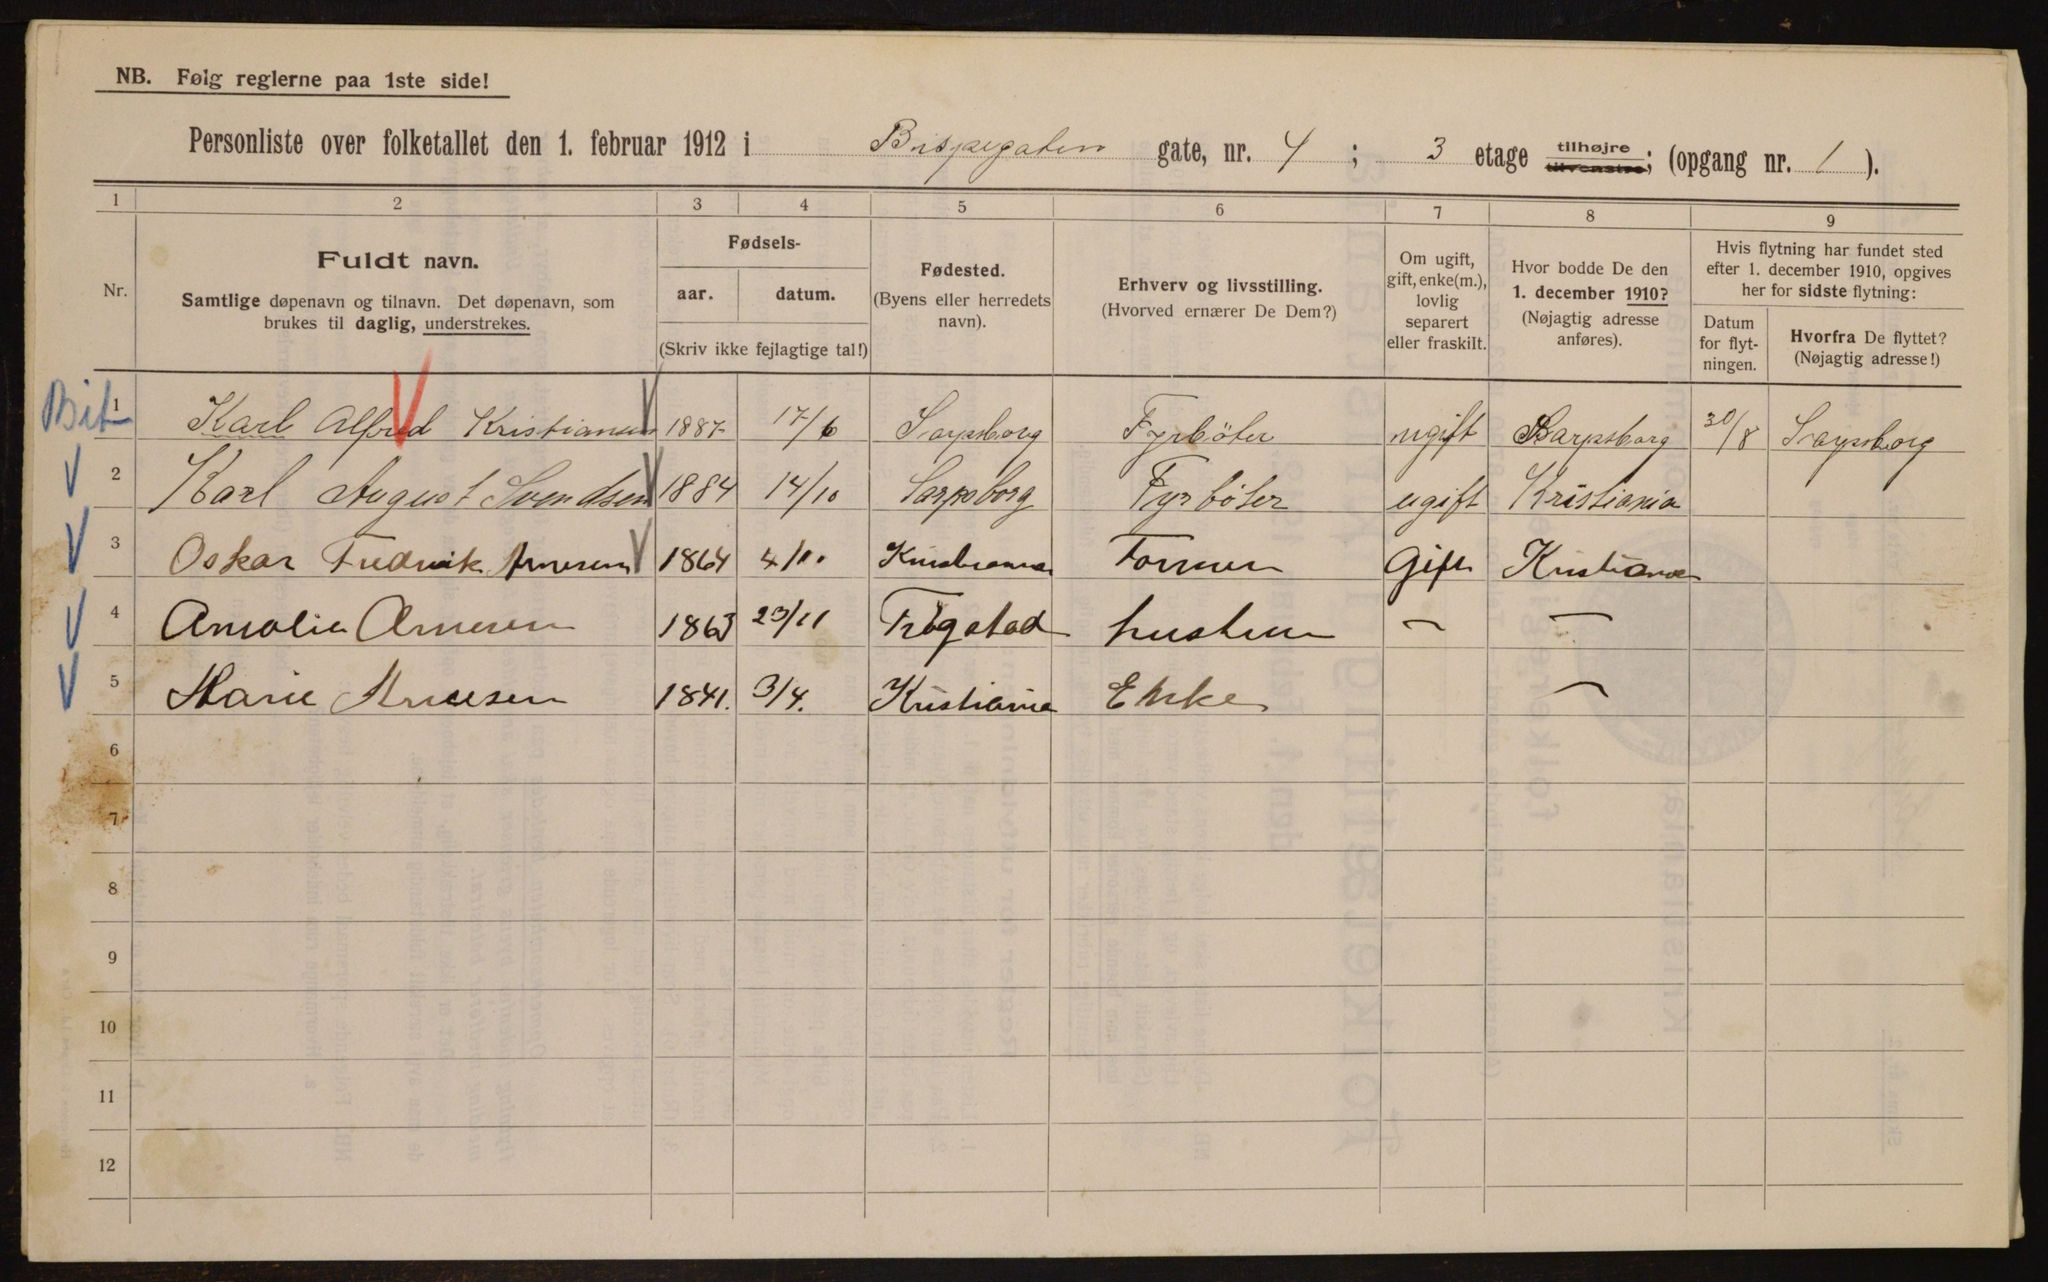 NB. Følg reglerne paa 1ste side!
Personliste over folketallet den 1. februar 1912 i Bispegaten gate, nr. 4 ; 3 etage tilhøjre tilvenstre; (opgang nr. 1 ).
1 2 3 4 5 6 7 8 9
Nr.
Fuldt navn.
Samtlige døpenavn og tilnavn. Det døpenavn, som
brukes til daglig, understrekes.
Fødsels-
aar. datum.
(Skriv ikke fejlagtige tal!)
Fødested.
(Byens eller herredets
navn).
Erhverv og livsstilling.
(Hvorved ernærer De Dem?)
Om ugift,
gift, enke(m.),
lovlig
separert
eller fraskilt.
Hvor bodde De den
1. december 1910?
(Nøjagtig adresse
anføres).
Hvis flytning har fundet sted
efter 1. december 1910, opgives
her for sidste flytning:
Datum
for flyt-
ningen.
Hvorfra De flyttet?
(Nøjagtig adresse!)
Bit 1 Karl Alfred Kristiansen 1887 17/6 Sarpsborg Fyrbøter ugift Sarpsborg 30/8 Sarpsborg
2 Karl August Svendsen 1884 14/10 Sarpsborg Fyrbøter ugift Kristiania
3 Oskar Fredrik Arnesen 1864 4/10. Kristiania Former Gift Kristiania
4 Amalie Arnesen 1863 23/11 Trøgstad hustru – –
5 Marie Arnesen 1841. 3/4. Kristiania Enke –
6
7
8
9
10
11
12